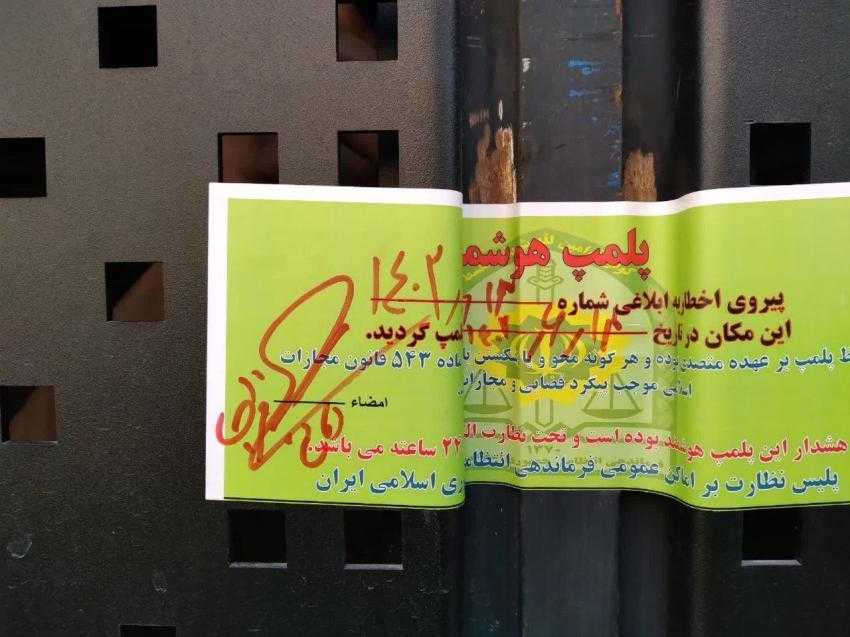 پلمپ هوشم
پیروی اخطاریه ابلاغی شماره
این مکان در تاریخ پلمپ گردید.
ظ پلمپ بر عهده متصدی بوده و هر گونه محو و یا شکستن ماده ۵۴۳ قانون مجازات
اسلامی موجب پیگرد قضایی و مجازات
امضاء
هشدار این پلمپ هوشمند بوده است و تحت نظارت ۲۴ ساعته می باشد.
پلیس نظارت بر اماکن عمومی فرماندهی انتظامی ری اسلامی ایران